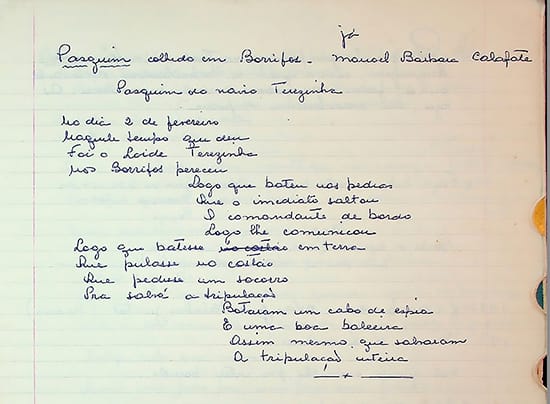 já
Pasquim colhido em Borrifos - Manoel Barbara Calafate
Pasquim do navio Terezinha
No dia 2 de fevereiro
Naquele tempo que deu
Foi o Loide Terezinha
Nos Borrifos pereceu
Logo que bateu nas pedras
Que o imediato saltou
O comandante de bordo
Logo lhe comunicou
Logo que batesse no costão em terra
Que pulasse no costão
Que pedisse um socorro
Pra salvá a tripulação
Botaram um cabo de espia
E uma boa baleeira
Assim mesmo que salvaram
A tripulação inteira